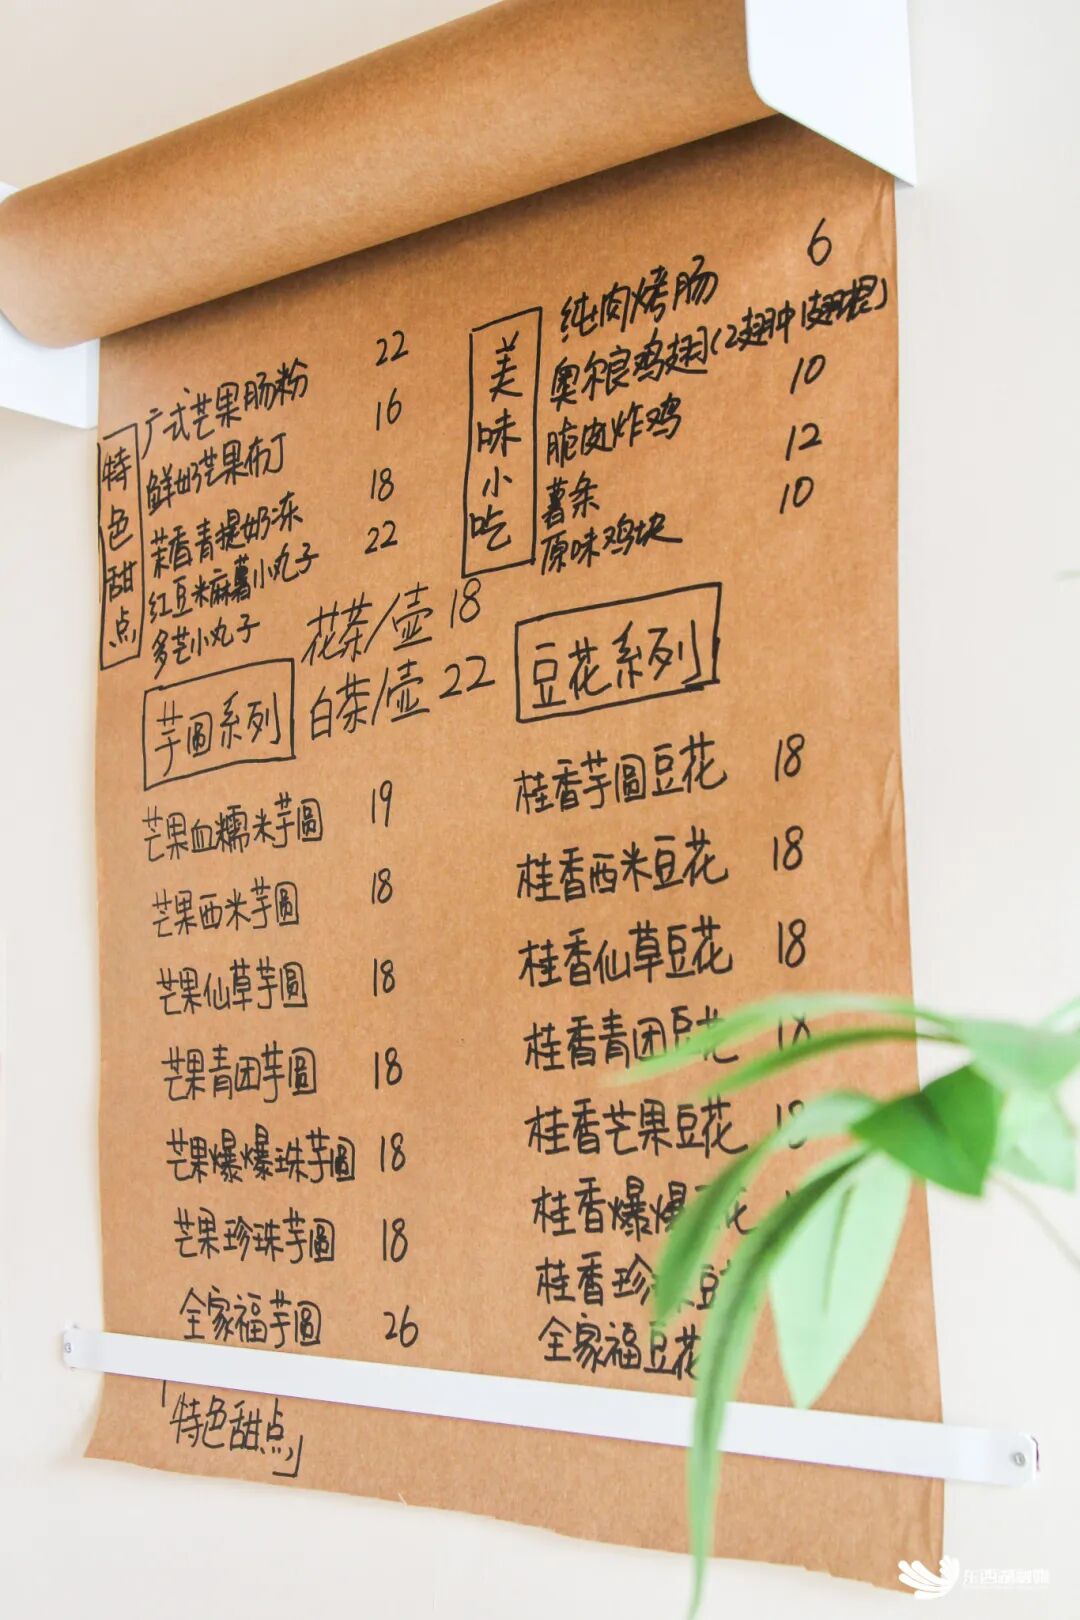 特色甜点
广式芒果肠粉 22
鲜奶芒果布丁 16
茉香青提奶冻 18
红豆米麻薯小丸子 22
多芒小丸子
美味小吃
纯肉烤肠 6
奥尔良鸡翅(2翅中1翅根)
脆皮炸鸡 10
薯条 12
原味鸡块 10
花茶/壶 18
白茶/壶 22
芋圆系列
芒果血糯米芋圆 19
芒果西米芋圆 18
芒果仙草芋圆 18
芒果青团芋圆 18
芒果爆爆珠芋圆 18
芒果珍珠芋圆 18
全家福芋圆 26
「特色甜点」
豆花系列
桂香芋圆豆花 18
桂香西米豆花 18
桂香仙草豆花 18
桂香青团豆花 18
桂香芒果豆花 18
桂香爆爆 花
桂香珍 豆
全家福豆花